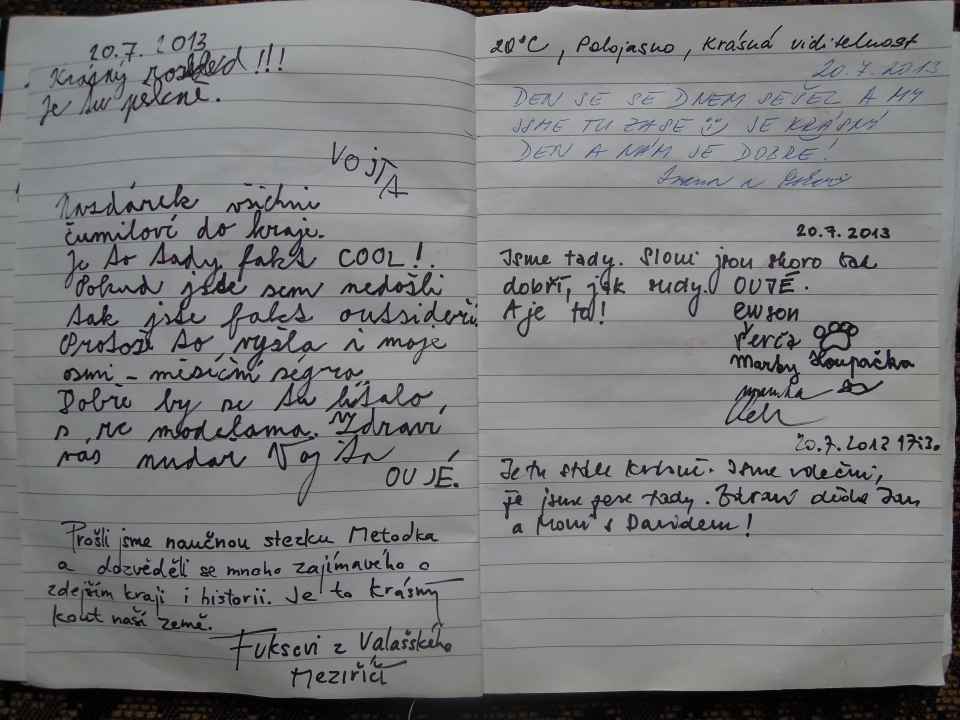 20.7. 2013
Krásný rozhled!!!
Je tu pěkně.
VOJTA
Nazdárek všichni
čumilové do kraje.
Je to tady fakt COOL!
Pokud jste sem nedošli
tak jste fakt outsideři.
Protože to vyšla i moje
osmi - měsíční ségra.
Dobře by se tu lítalo,
s rc modelama. Zdraví
vás nudar Vojta
OUJÉ.
Prošli jsme naučnou stezku Metodka
a dozvěděli se mnoho zajímavého o
zdejším kraji i historii. Je to krásný
kout naší země.
Fuksovi z Valašského
Meziříčí
20°C, Polojasno, Krásná viditelnost
20.7.2013
DEN SE SE DNEM SEŠEL A MY
JSME TU ZASE JE KRÁSNÝ
DEN A NÁM JE DOBŘE!
Ivana a
20.7.2013
Jsme tady. Sloni jsou skoro tak
dobří, jak rudy. OUJÉ.
A je to!
ewson
Verča
Marby Houpačka
20.7.2013 17:30
Je tu stále krásně. Jsme vděční,
že jsme zase tady. Zdraví děda Jan
a Moni s Davidem!